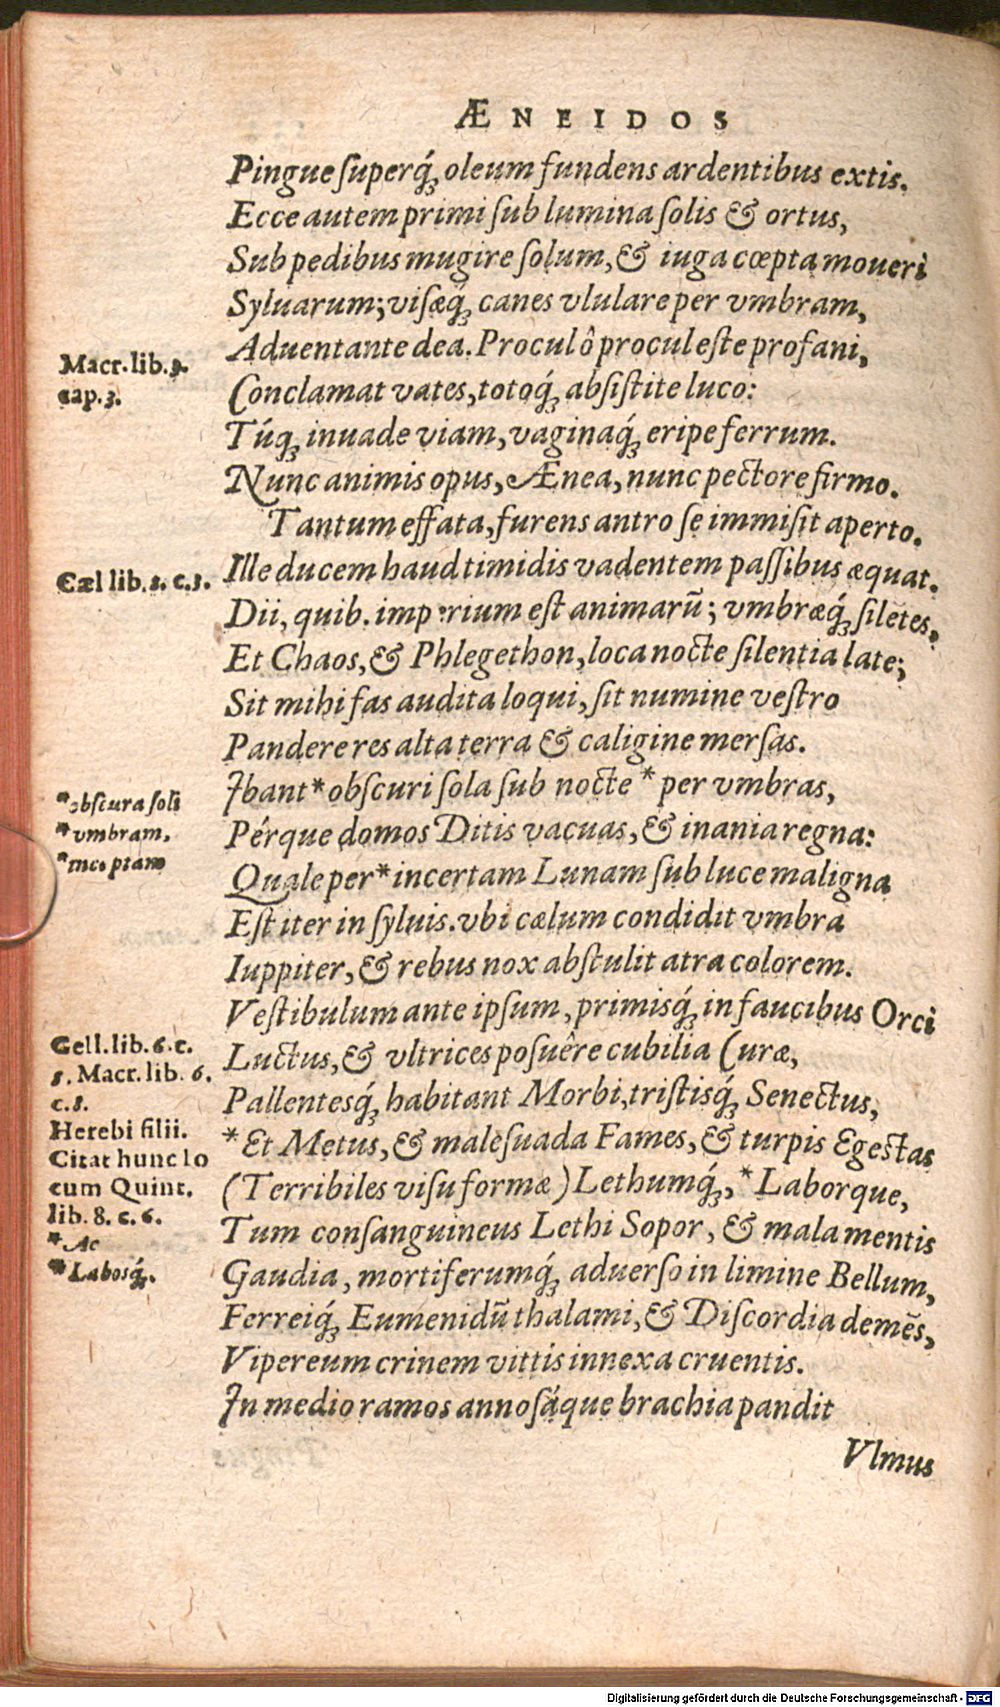 ÆNEIDOS
Pingue superq́; oleum fundens ardentibus extis.
Ecce autem primi sub lumina solis & ortus,
Sub pedibus mugire solum, & iuga cœpta moueri
Syluarum; visæq́; canes vlulare per vmbram,
Aduentante dea. Procul ô procul este profani,
Macr. lib. 3.
cap. 3.
Conclamat vates, totoq́; absistite luco:
Túq; inuade viam, vaginaq́; eripe ferrum.
Nunc animis opus, Ænea, nunc pectore firmo.
Tantum effata, furens antro se immisit aperto.
Cæl lib. 2. c. 3.
Ille ducem haud timidis vadentem passibus æquat.
Dii, quib. imperium est animarũ; vmbræq́; siletes,
Et Chaos, & Phlegethon, loca nocte silentia late;
Sit mihi fas audita loqui, sit numine vestro
Pandere res alta terra & caligine mersas.
*obscura soli
*vmbram,
*inceptam
Ibant *obscuri sola sub nocte *per vmbras,
Pérque domos Ditis vacuas, & inania regna:
Quale per *incertam Lunam sub luce maligna
Est iter in syluis. vbi cælum condidit vmbra
Iuppiter, & rebus nox abstulit atra colorem.
Vestibulum ante ipsum, primisq́; in faucibus Orci
Gell. lib. 6. c.
5. Macr. lib. 6.
c. 8.
Herebi filii.
Citat hunc lo
cum Quint.
lib. 8. c. 6.
*Ac
*Labosq́;.
Luctus, & vltrices posuêre cubilia Curæ,
Pallentesq́; habitant Morbi, tristisq́; Senectus,
*Et Metus, & malesuada Fames, & turpis Egestas
(Terribiles visu formæ) Lethumq́;, *Laborque,
Tum consanguineus Lethi Sopor, & mala mentis
Gaudia, mortiferumq́; aduerso in limine Bellum,
Ferreiq́; Eumenidũ thalami, & Discordia demẽs,
Vipereum crinem vittis innexa cruentis.
In medio ramos annosáque brachia pandit
Vlmus
Digitalisierung gefördert durch die Deutsche Forschungsgemeinschaft - DFG